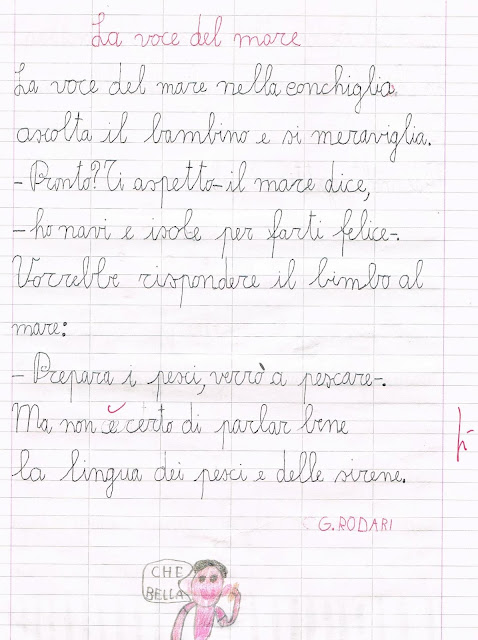 La voce del mare
La voce del mare nella conchiglia
ascolta il bambino e si meraviglia.
-Pronto? Ti aspetto-il mare dice,
-ho navi e isole per farti felice-.
Vorrebbe rispondere il bimbo al
mare:
-Prepara i pesci, verrò a pescare-.
Ma non è certo di parlar bene
la lingua dei pesci e delle sirene.
G. RODARI
CHE
BELLA